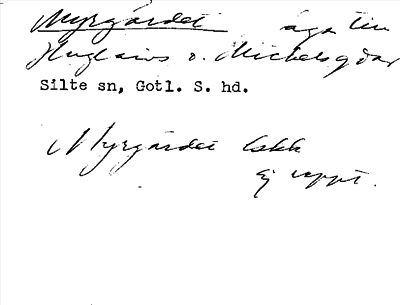 Myrgärdet äga till
Huglaivs o. Michels gdar
Silte sn, Gotl. S. hd.
Myrgärdet
ej uppt.